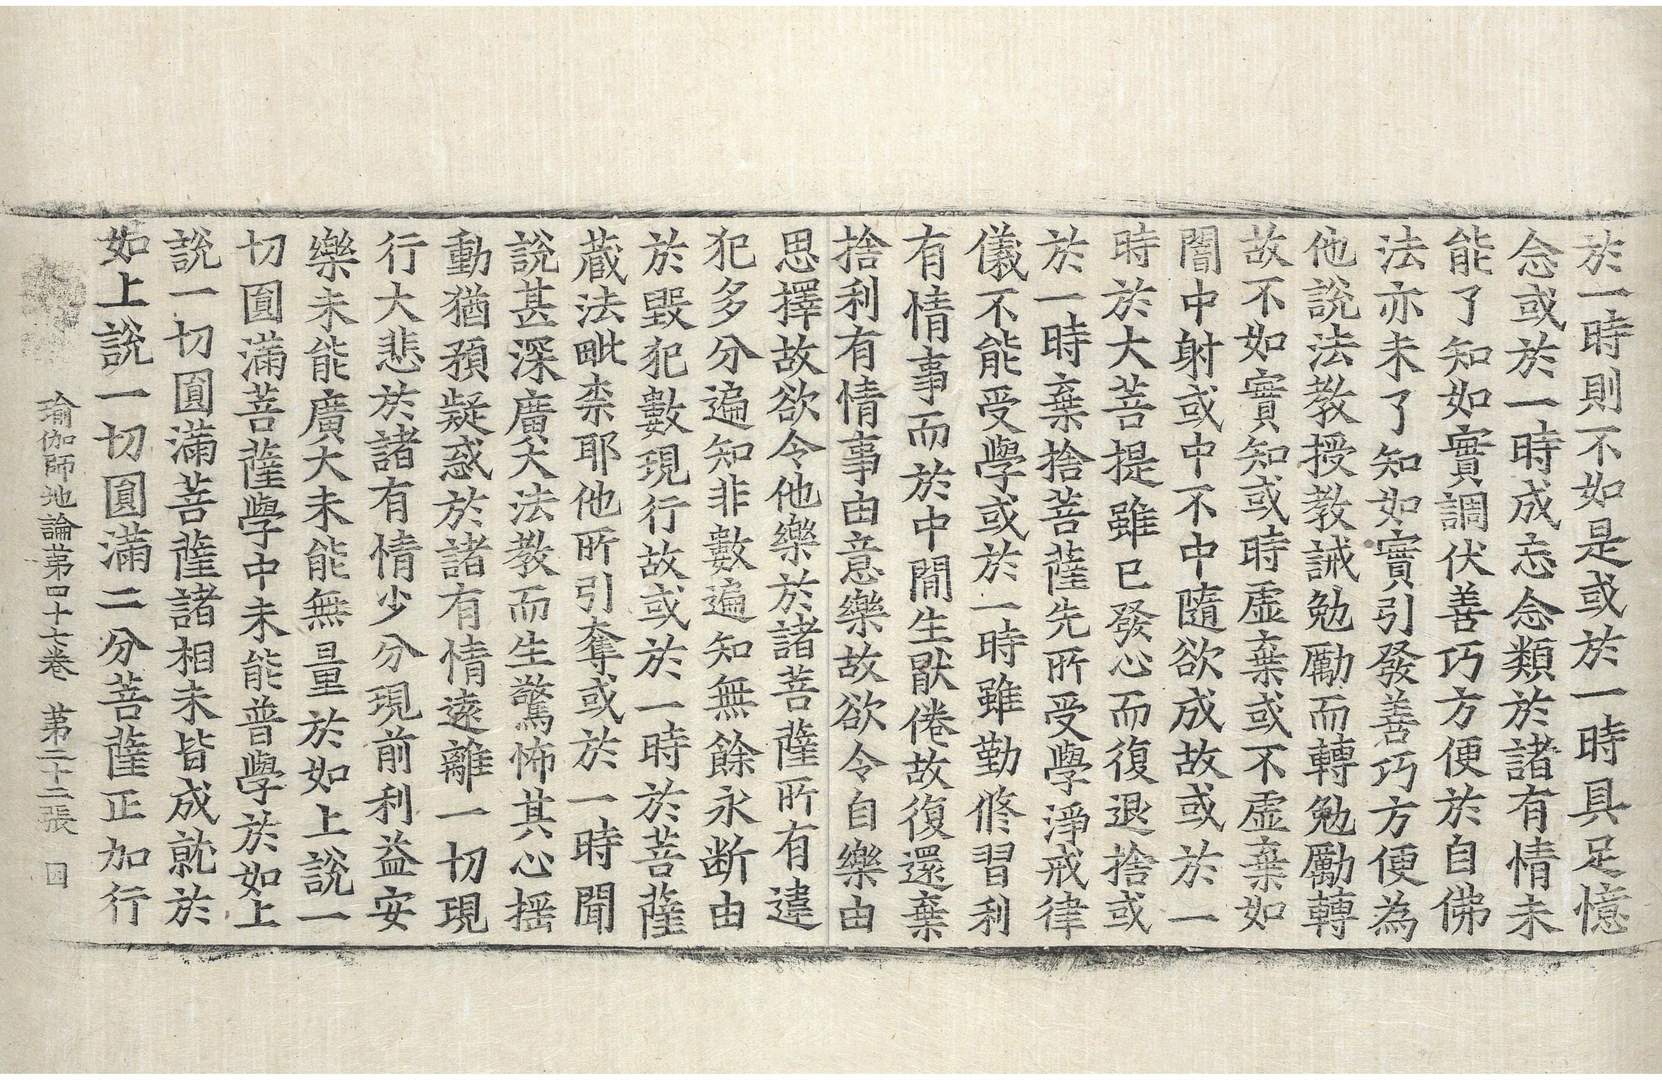 於一時則不如是或於一時具足憶
念或於一時成忘念類於諸有情未
能了知如實調伏善巧方便於自佛
法亦未了知如實引發善巧方便為
他說法教授教誡勉勵而轉勉勵轉
故不如實知或時虛棄或不虛棄如
闇中射或中不中隨欲成故或於一
時於大菩提雖已發心而復退捨或
於一時棄捨菩薩先所受學淨戒律
儀不能受學或於一時雖勤修習利
有情事而於中間生猒倦故復還棄
捨利有情事由意樂故欲令自樂由
思擇故欲令他樂於諸菩薩所有違
犯多分遍知非數遍知無餘永断由
於毀犯數現行故或於一時於菩薩
蔵法毗柰耶他所引奪或於一時聞
說甚深廣大法教而生驚怖其心揺
動猶預疑惑於諸有情遠離一切現
行大悲於諸有情少分現前利益安
樂未能廣大未能無量於如上說一
切圓滿菩薩學中未能普學於如上
說一切圓滿菩薩諸相未皆成就於
如上說一切圓滿二分菩薩正加行
瑜伽師地論第四十七卷 第二十二張